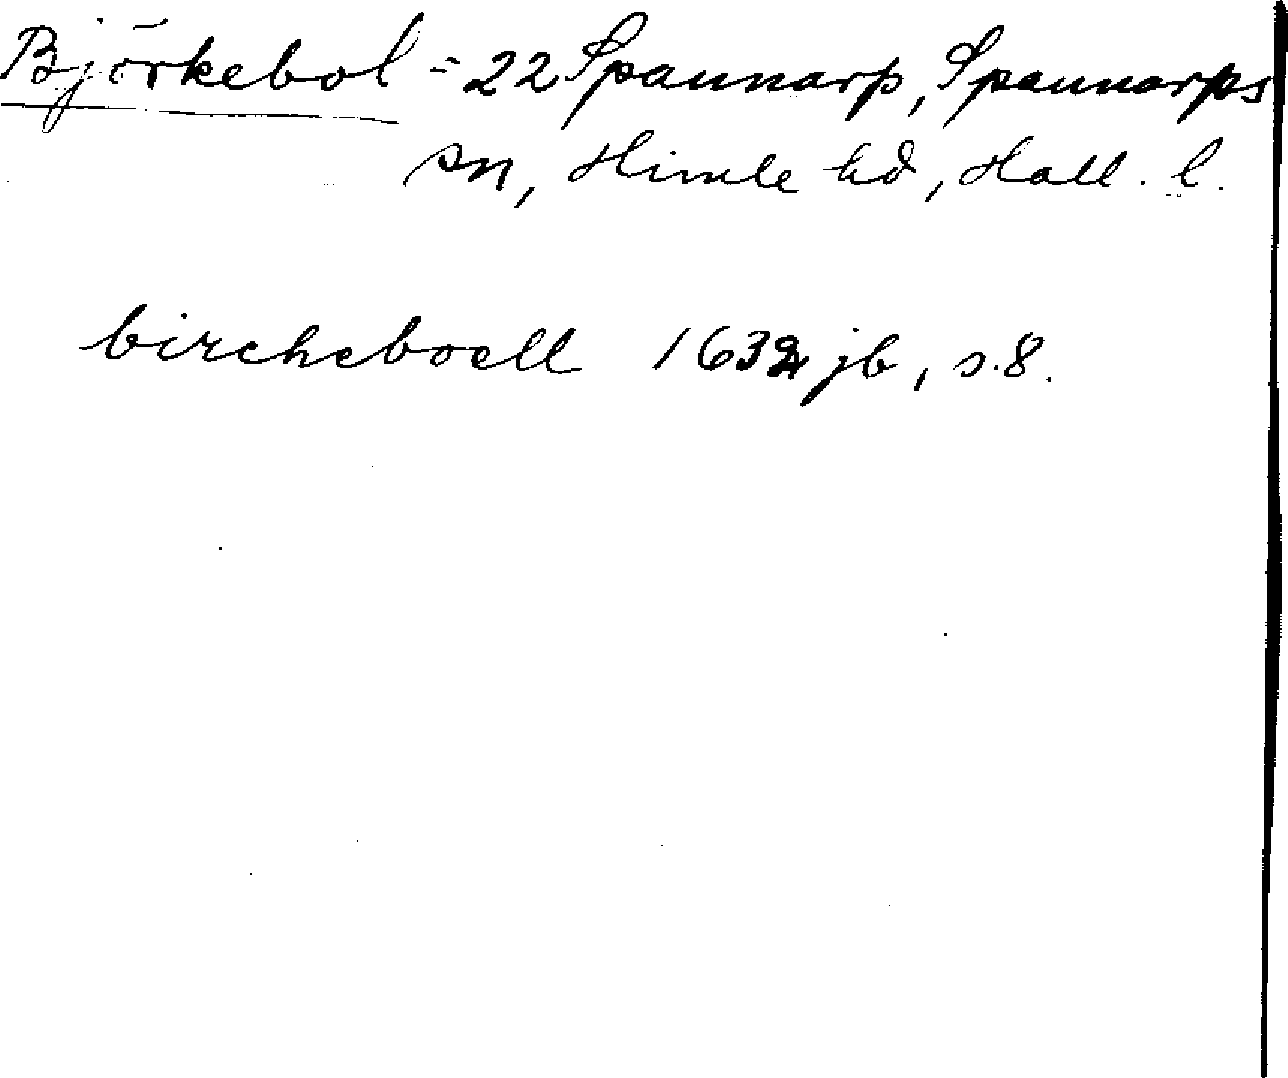 Björkebol = 22 Spannarp, Spannarps
sn, Himle hd, Hall. l.
bircheboell jb, s.8.